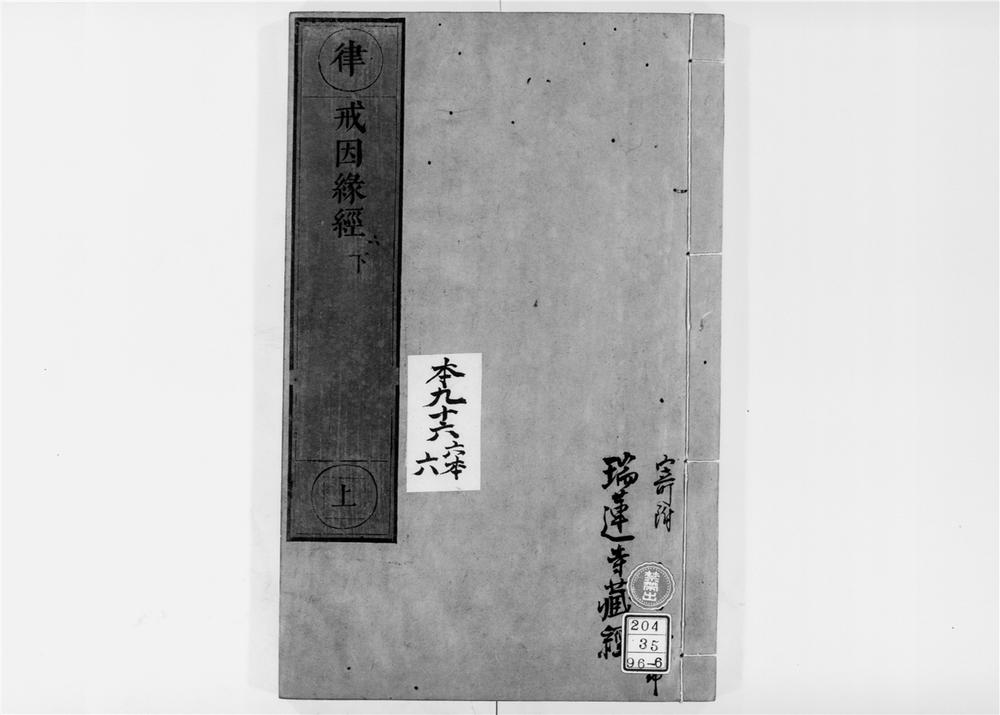 寄附
瑞蓮寺藏經
禁帶出
204
35
96-6
本九十六
六本
六
律
戒因緣經
六
下
上